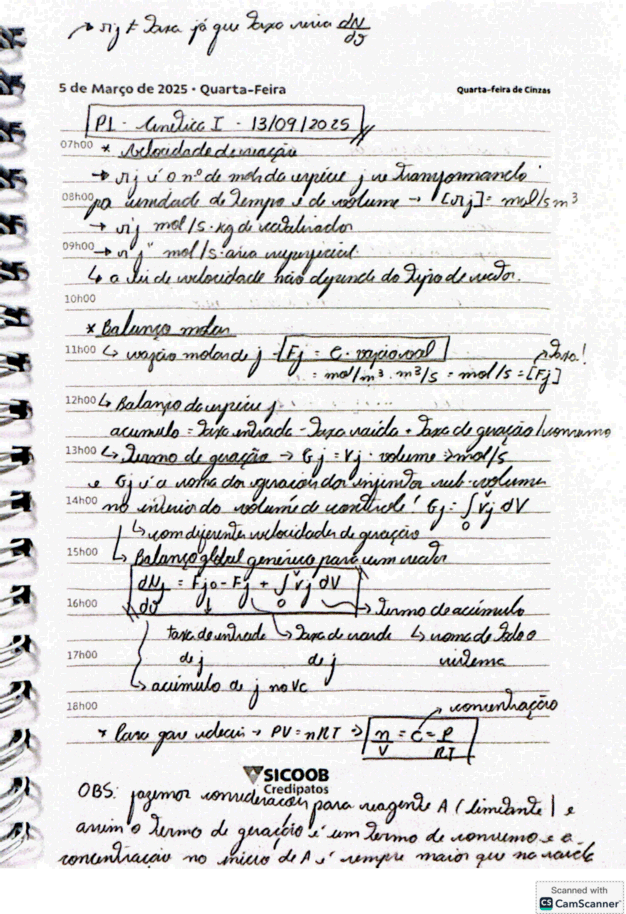 → rj ≠ Taxa já que Taxa seria dN/dt
5 de Março de 2025 • Quarta-Feira
Quarta-feira de Cinzas
P1 - Cinética I - 13/09/2025
07h00 * Velocidade de reação
→ rj é o nº de mols da espécie j se transformando
08h00 por unidade de tempo e de volume → [rj] = mol/s m³
→ r'j mol/s·kg de catalisador
09h00 → r''j mol/s·area superficial
↳ a lei de velocidade não depende do tipo de reator.
10h00
* Balanço molar
11h00 ↳ vazão molar de j → Fj = C · vazão vol → Taxa!
= mol/m³ · m³/s = mol/s = [Fj]
12h00 ↳ Balanço da espécie j
acumulo = Taxa entrada - Taxa saida + Taxa de geração/consumo
13h00 ↳ Termo de geração → Gj = rj · volume → mol/s
e Gj é a soma das geracoes dos infinitos sub-volumes
14h00 no interior do volume de controle! Gj = ∫₀ᵛ rj dV
↳ com diferentes velocidades de geração
15h00 ↳ Balanço global genérico para um reator
dNj/dt = Fj0 - Fj + ∫₀ᵛ rj dV
16h00 → Termo de acúmulo
taxa de entrada ↳ Taxa de saida ↳ soma de todo o
17h00 de j de j sistema
↳ acúmulo de j no VC
18h00 → concentração
* Para gases ideais → PV = nRT ⇒ n/V = C = P/RT
SICOOB
Credipatos
OBS: fazemos consideracoes para reagente A (limitante) e
assim o termo de geração é um termo de consumo e a
concentração no início de A é sempre maior que na saida
Scanned with
CS CamScanner